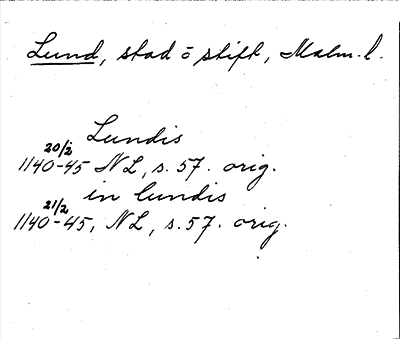 Lund, stad o stift, Malm. l.
Lundis
20/2
1140-45 NL, s. 57. orig.
in lundis
21/2
1140-45, NL, s. 57. orig.